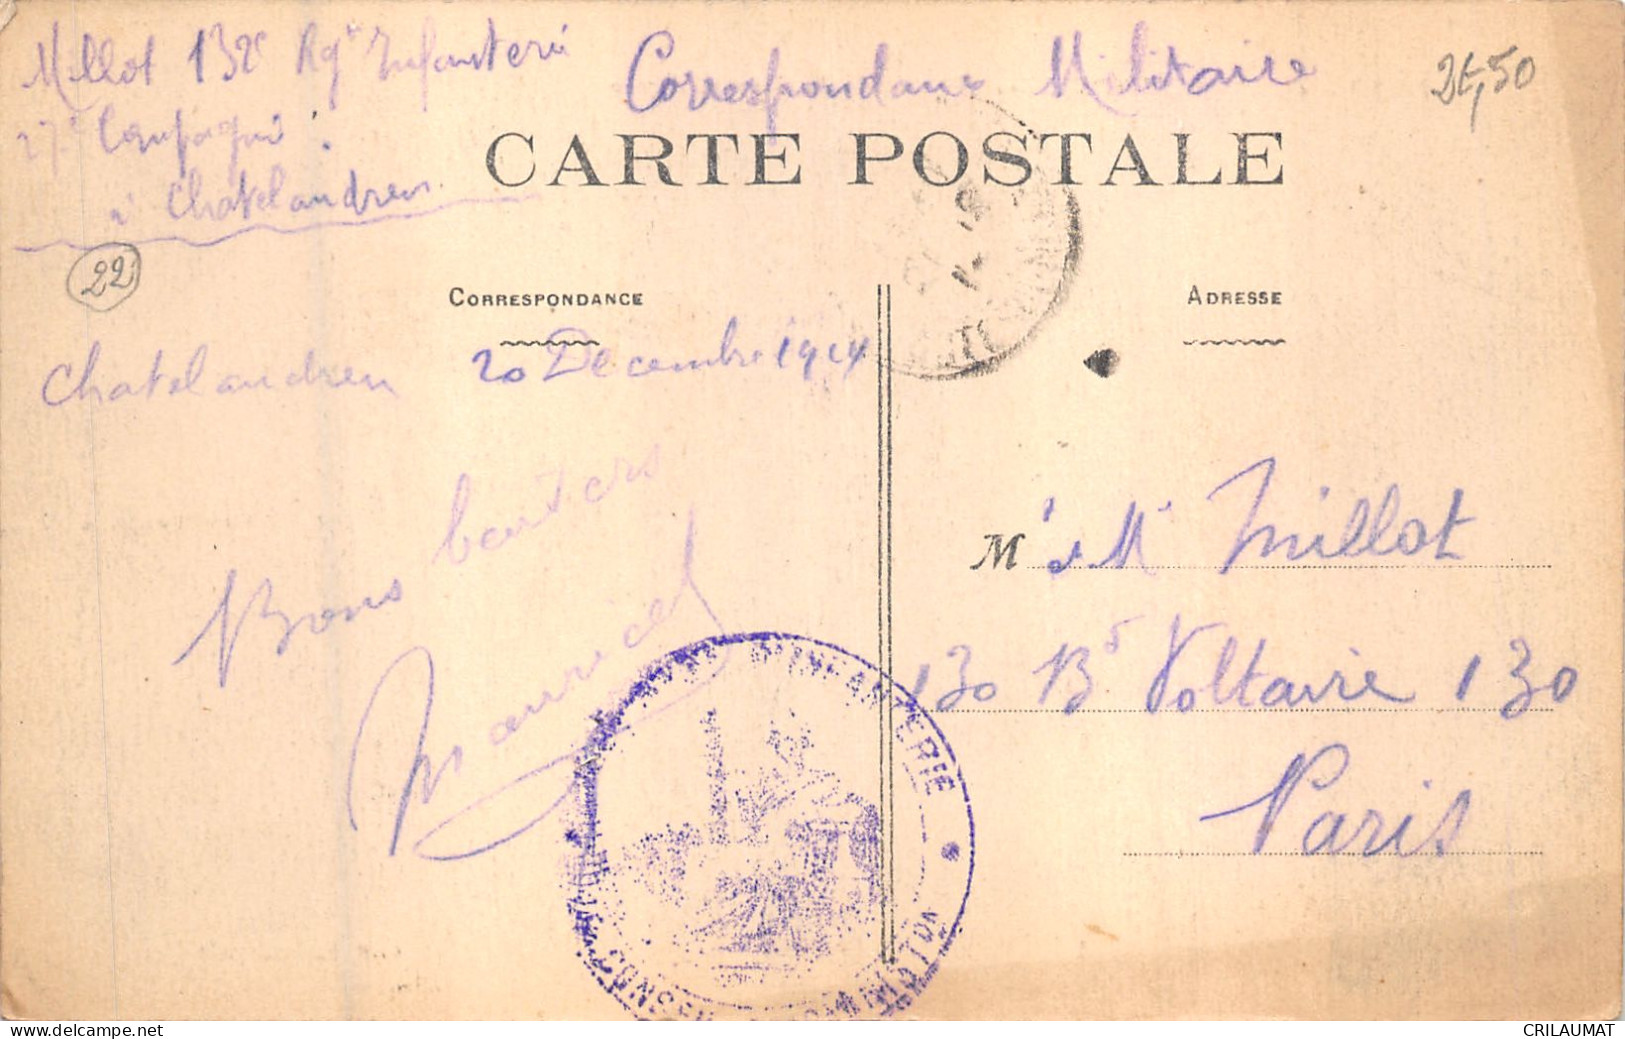 Millot 132e Rgt Infanterie
27e Compagnie
à Chatelandren
Correspondance Militaire
2€,50
CARTE POSTALE
22
CORRESPONDANCE
ADRESSE
Chatelandren 20 Decembre 1914
Bons baisers
Maurice
M r et Me Millot
130 Bd Voltaire 130
Paris
D'INFANTERIE